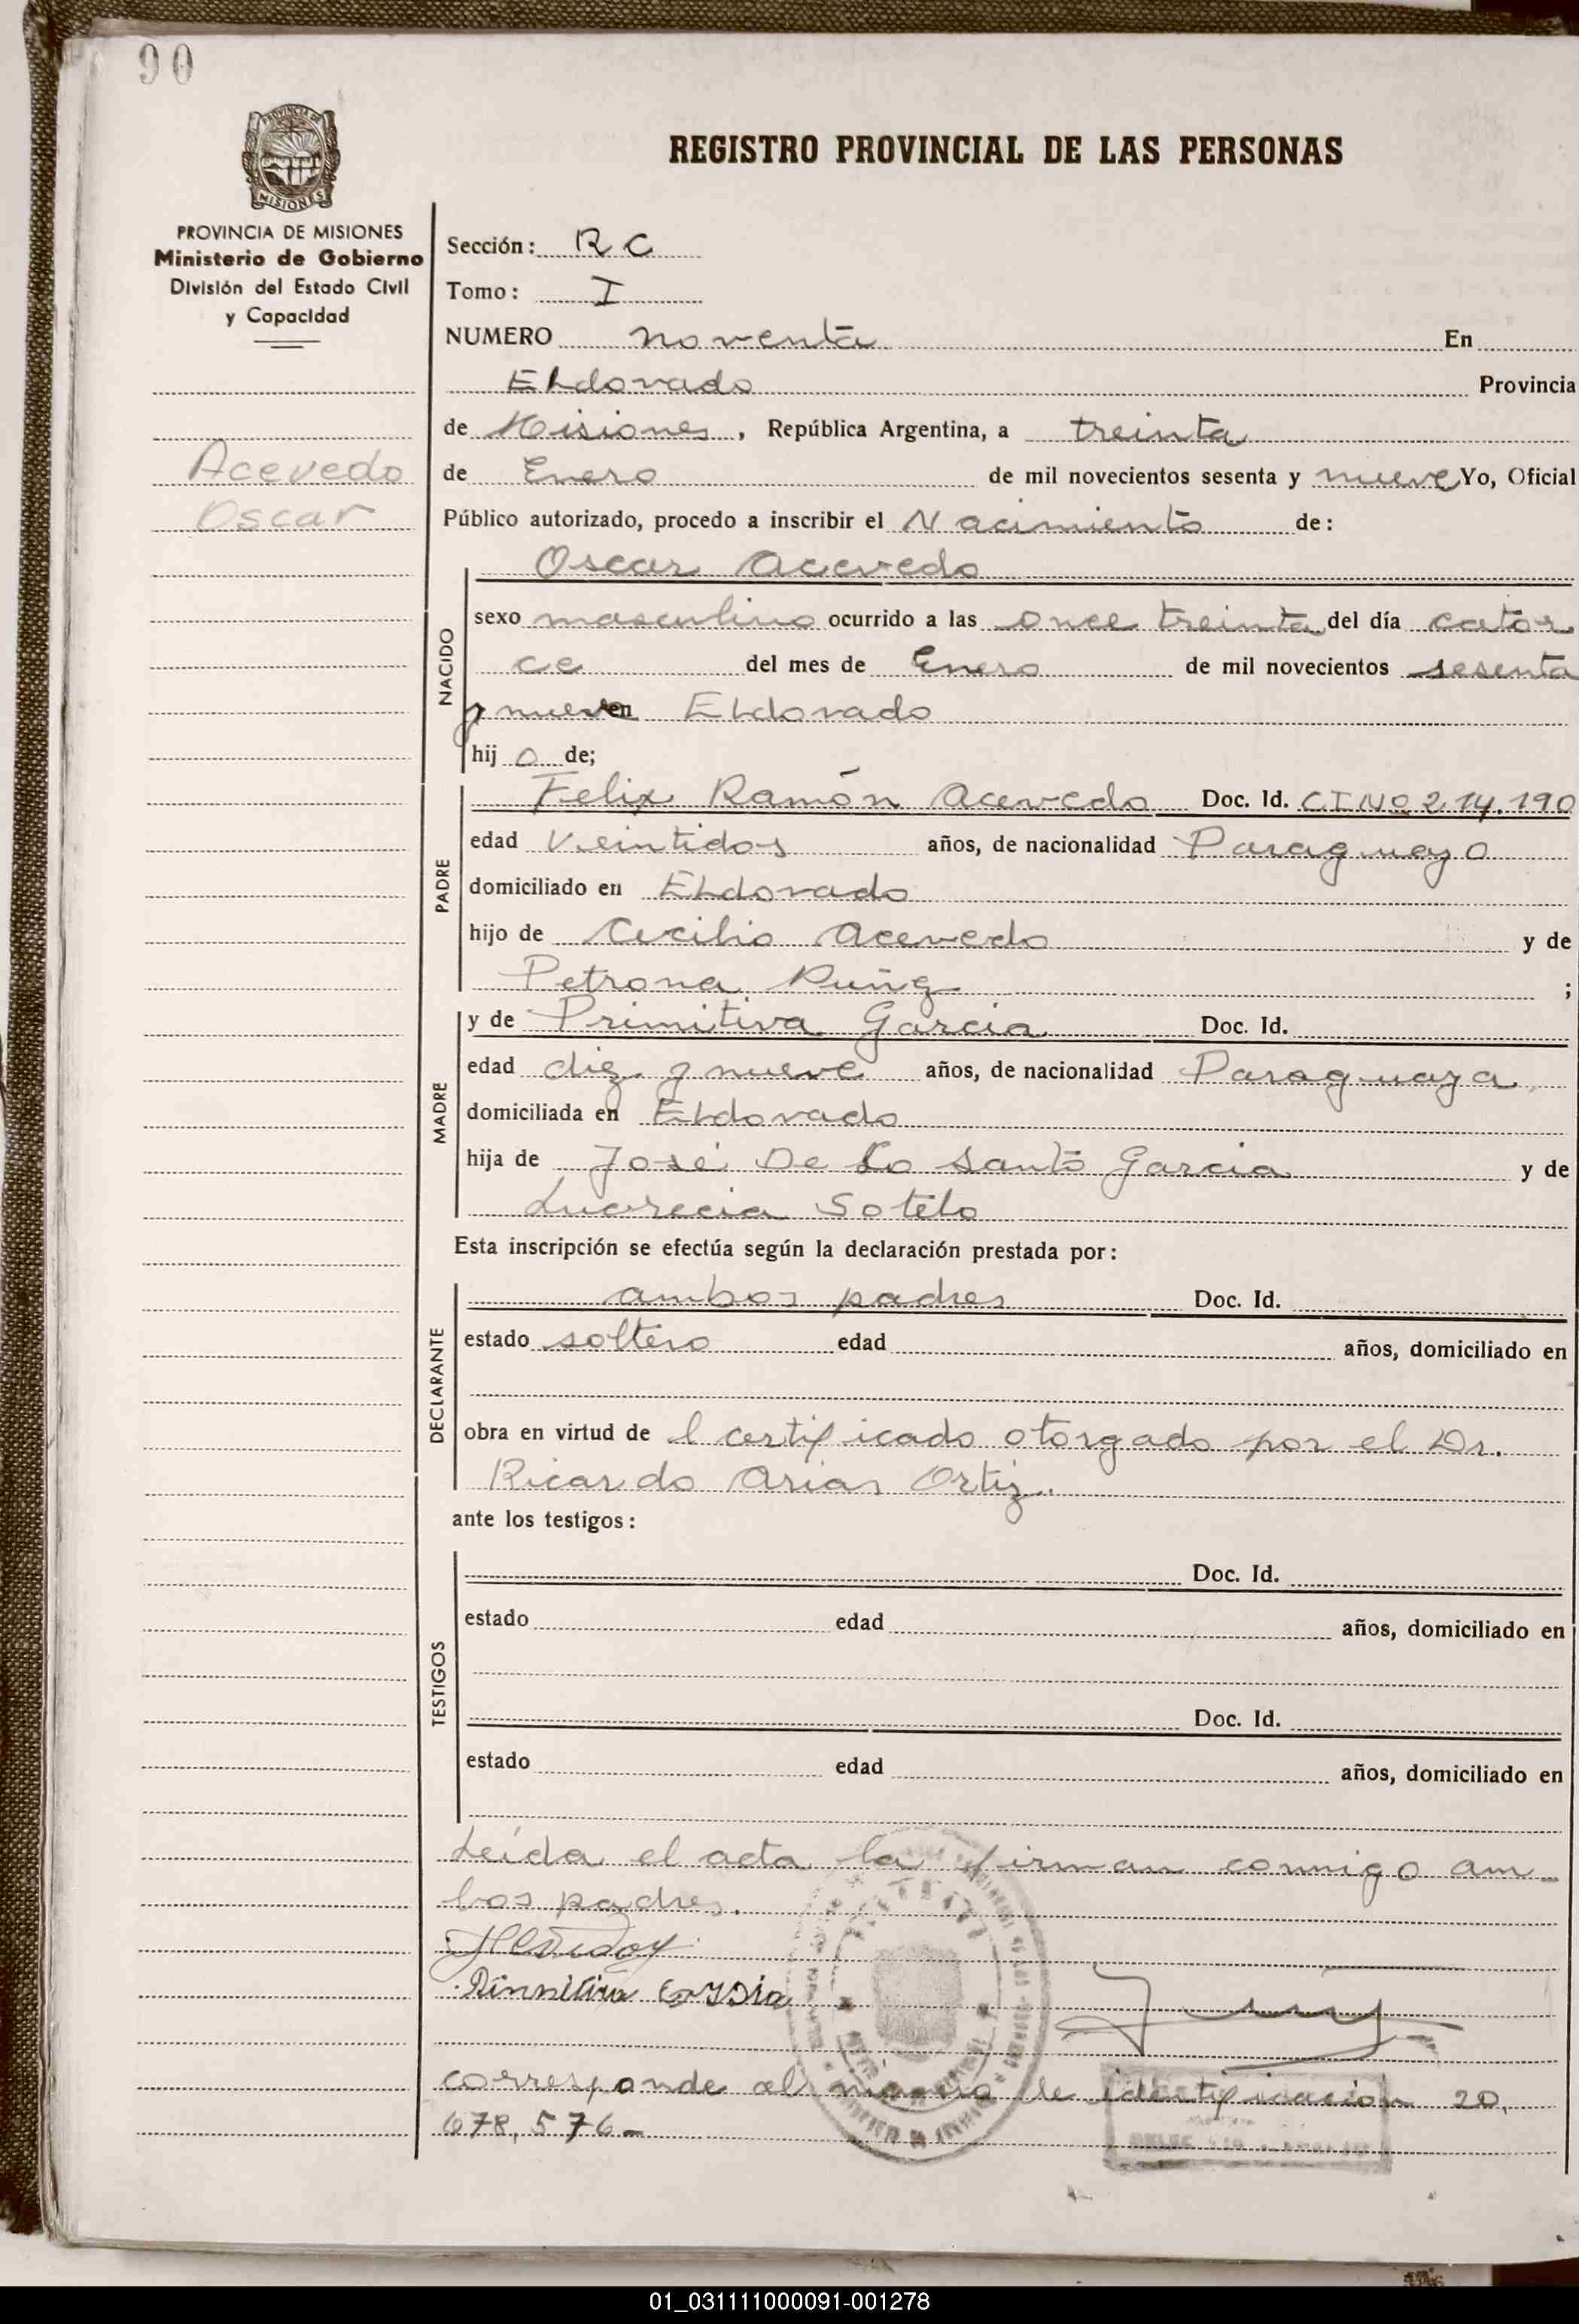 90
PROVINCIA DE MISIONES
Ministerio de Gobierno
División del Estado Civil
y Capacidad
Acevedo
Oscar
REGISTRO PROVINCIAL DE LAS PERSONAS
Sección: R C
Tomo: I
NUMERO noventa En
ELdorado Provincia
de Misiones, República Argentina, a treinta
de Enero de mil novecientos sesenta y nueve Yo, Oficial
Público autorizado, procedo a inscribir el Nacimiento de:
Oscar Acevedo
NACIDO
sexo masculino ocurrido a las once treinta del día cator
ce del mes de Enero de mil novecientos sesenta
y nueve en ELdorado
hij o de;
PADRE
Felix Ramón Acevedo Doc. Id. C I Nº 214.190
edad veintidos años, de nacionalidad Paraguayo
domiciliado en ELdorado
hijo de Cecilio Acevedo y de
Petrona ;
MADRE
y de Primitiva Garcia Doc. Id.
edad diez y nueve años, de nacionalidad Paraguaya
domiciliada en ELdorado
hija de José De Lo Santo Garcia y de
Lucrecia Sotelo
Esta inscripción se efectúa según la declaración prestada por:
DECLARANTE
ambos padres Doc. Id.
estado soltero edad años, domiciliado en
obra en virtud de l certificado otorgado por el Dr.
Ricardo Arias Ortiz.
ante los testigos:
TESTIGOS
Doc. Id.
estado edad años, domiciliado en
Doc. Id.
estado edad años, domiciliado en
Leída el acta la firman conmigo am
bos padres.
corresponde al número de identificación 20.
678,576-
01_031111000091-001278